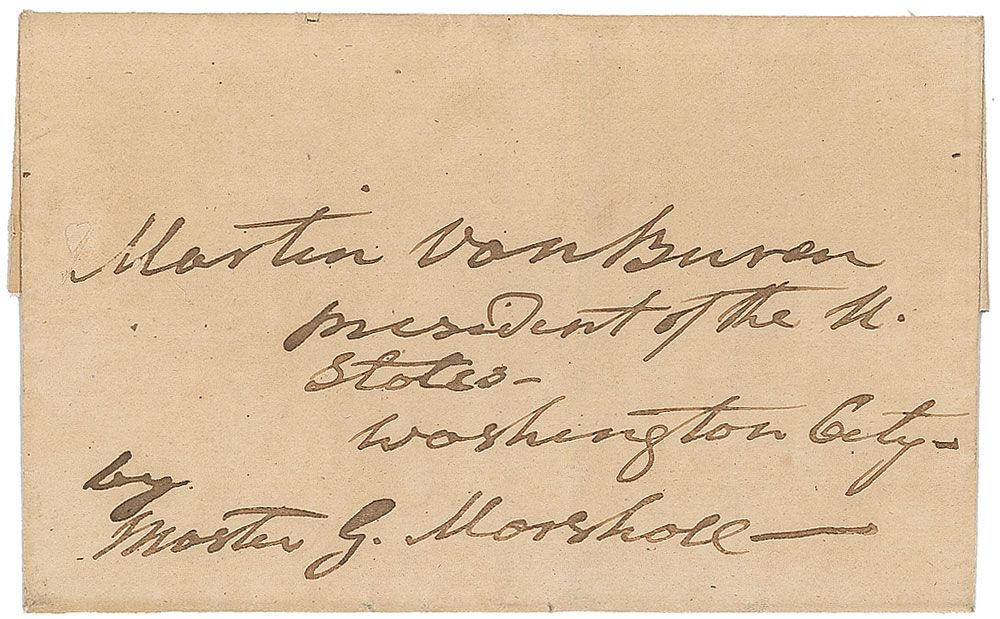 Martin Van Buren
president of the U.
States-
Washington City-
by
Master G. Marshall—